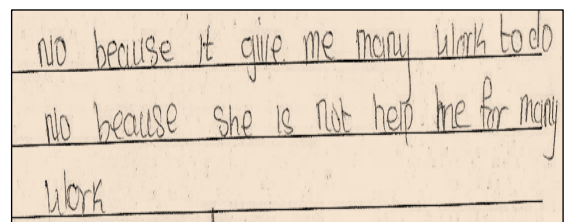 No because it give me many work to do
No beacuse she is not help me for many
work